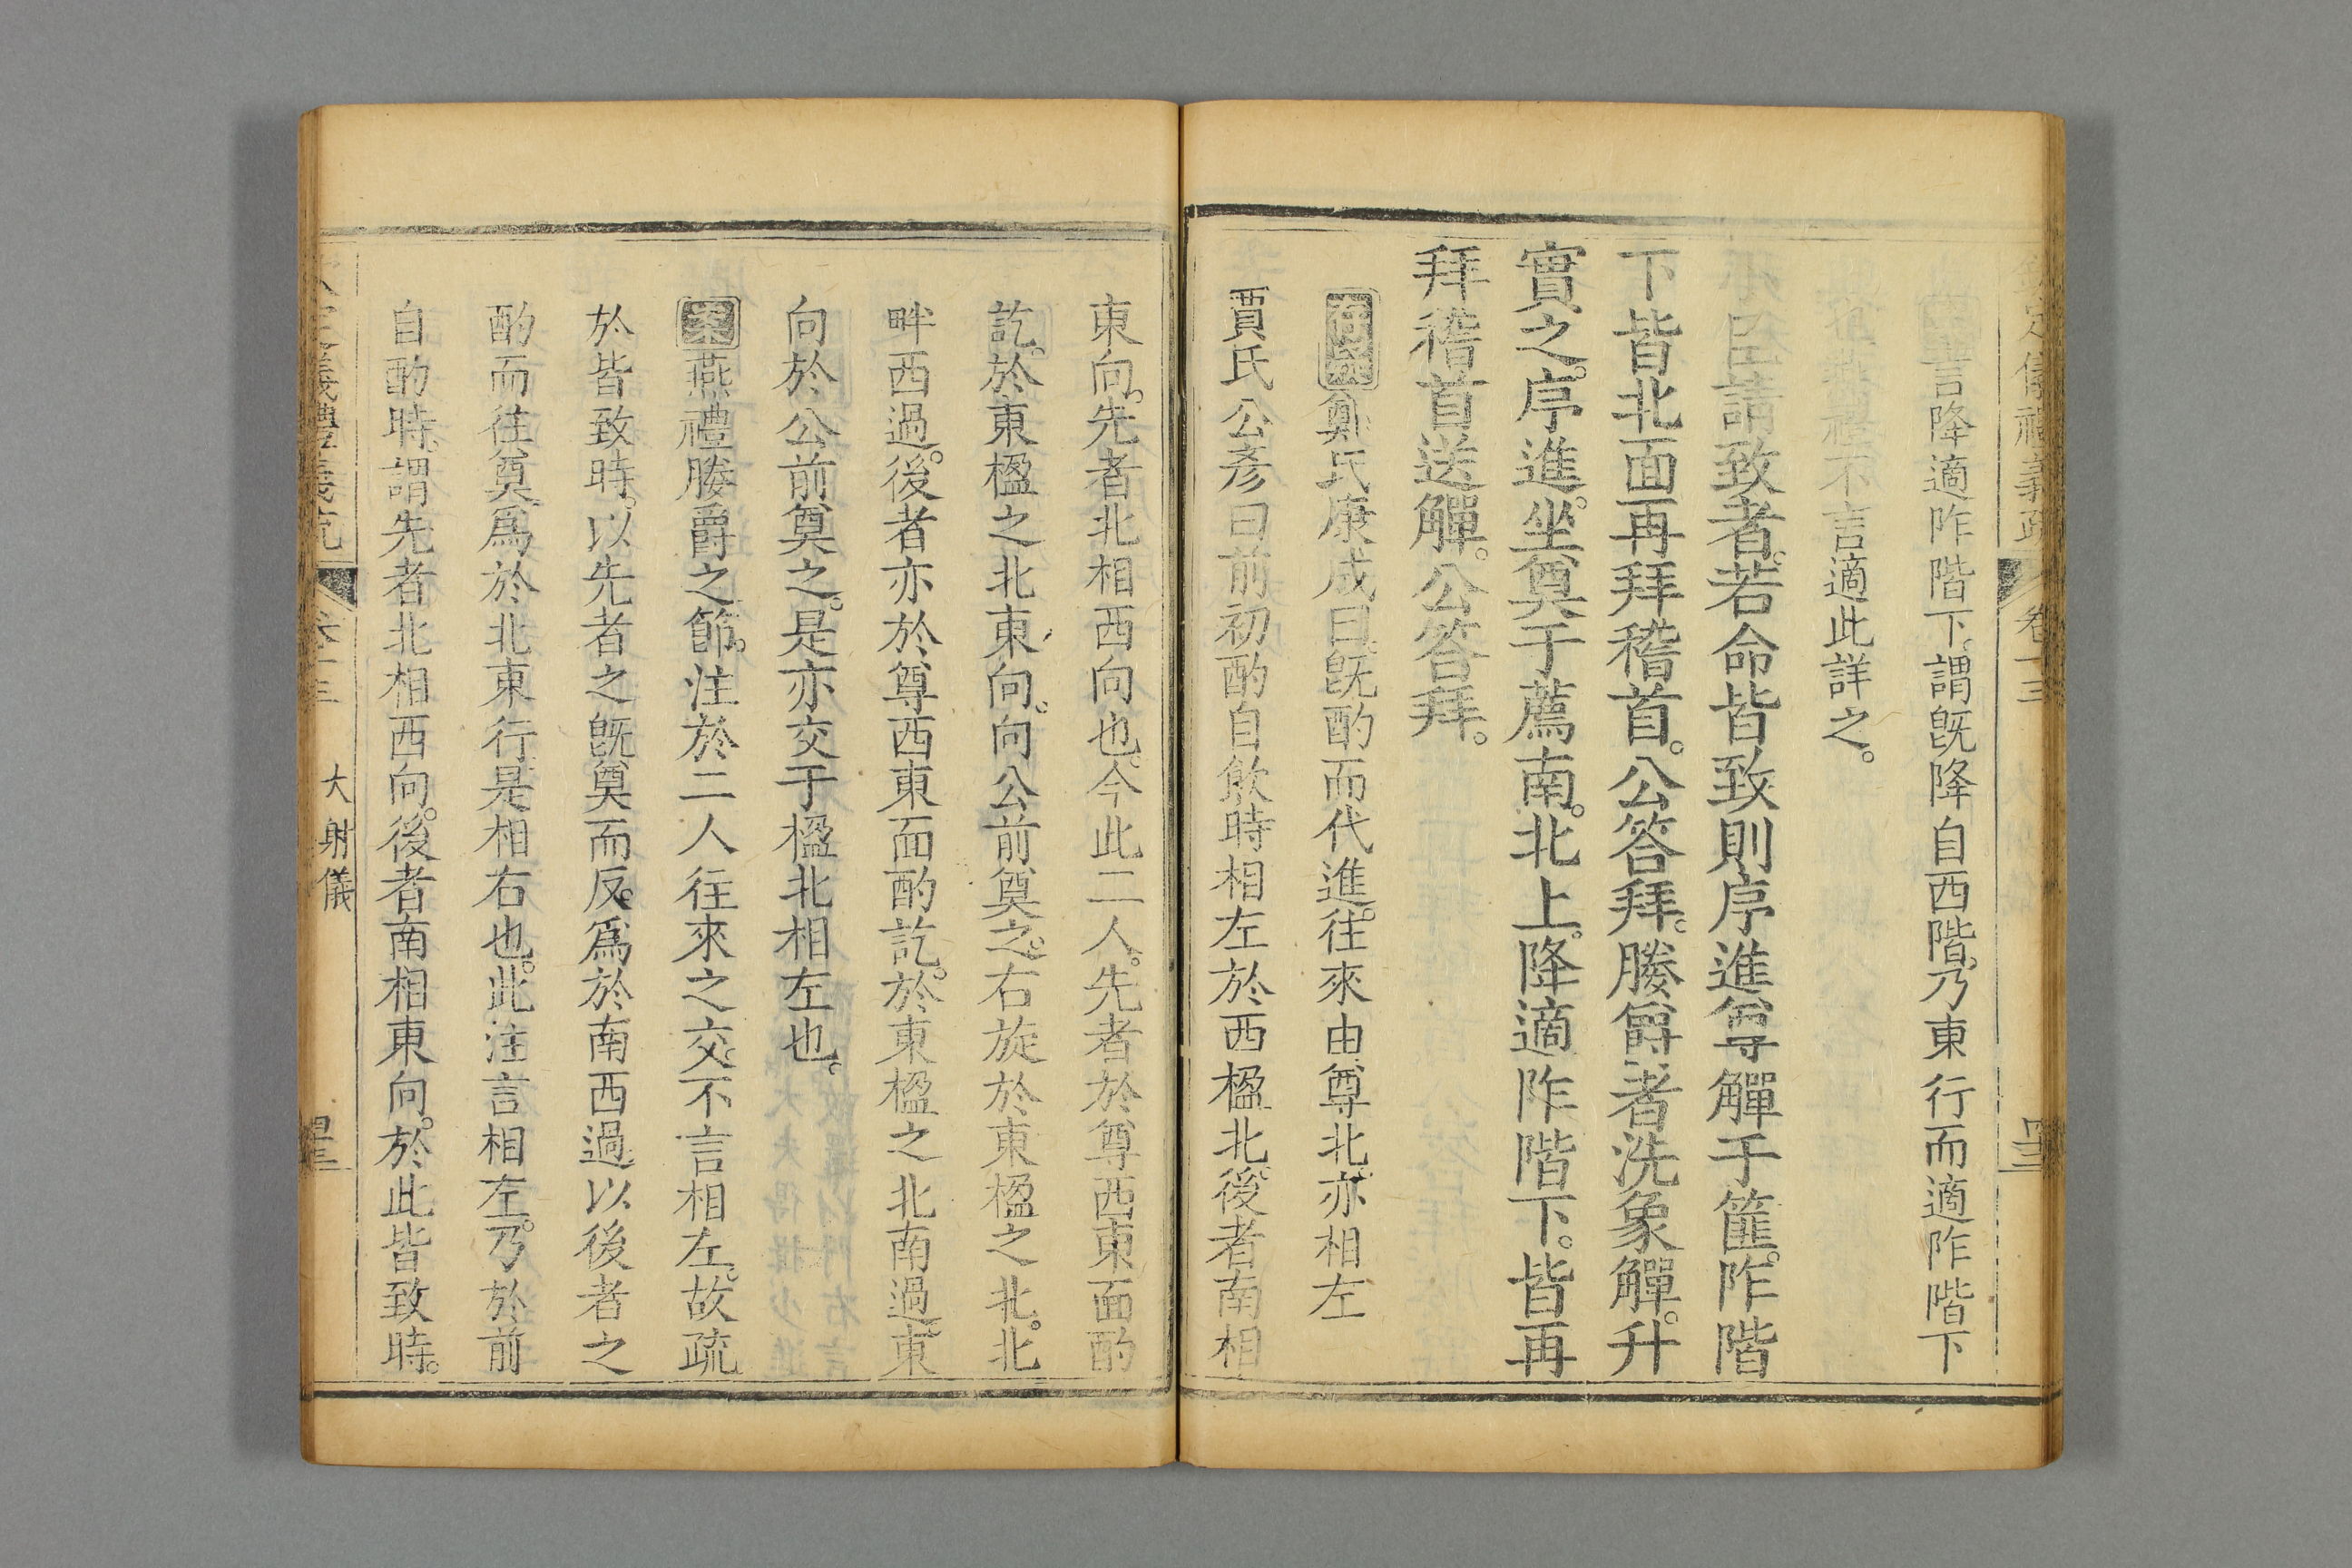 欽定儀禮義疏 卷十三
言降適阼階下。謂旣降自西階。乃東行而適阼階下
燕禮不言適此詳之。
小臣請致者。若命皆致則序進奠觶于篚。阼階
下皆北面再拜稽首。公答拜。媵爵者洗象觶。升
實之。序進。坐奠于薦南。北上。降適阼階下。皆再
拜稽首送觶。公答拜。
鄭氏康成曰旣酌而代進。往來由尊北。亦相左
賈氏公彥曰前初酌自飮時相左於西楹北。後者南相
東向。先者北相西向也。今此二人。先者於尊西東面酌
訖。於東楹之北東向。向公前奠之。右旋於東楹之北。北
畔西過。後者亦於尊西東面酌訖。於東楹之北南過。東
向於公前奠之。是亦交于楹北相左也。
案燕禮媵爵之節。注於二人往來之交。不言相左。故疏
於皆致時。以先者之旣奠而反。爲於南西過。以後者之
酌而往奠。爲於北東行。是相右也。此注言相左。乃於前
自酌時。謂先者北相西向。後者南相東向。於此皆致時。
儀禮義疏 卷十三 大射儀